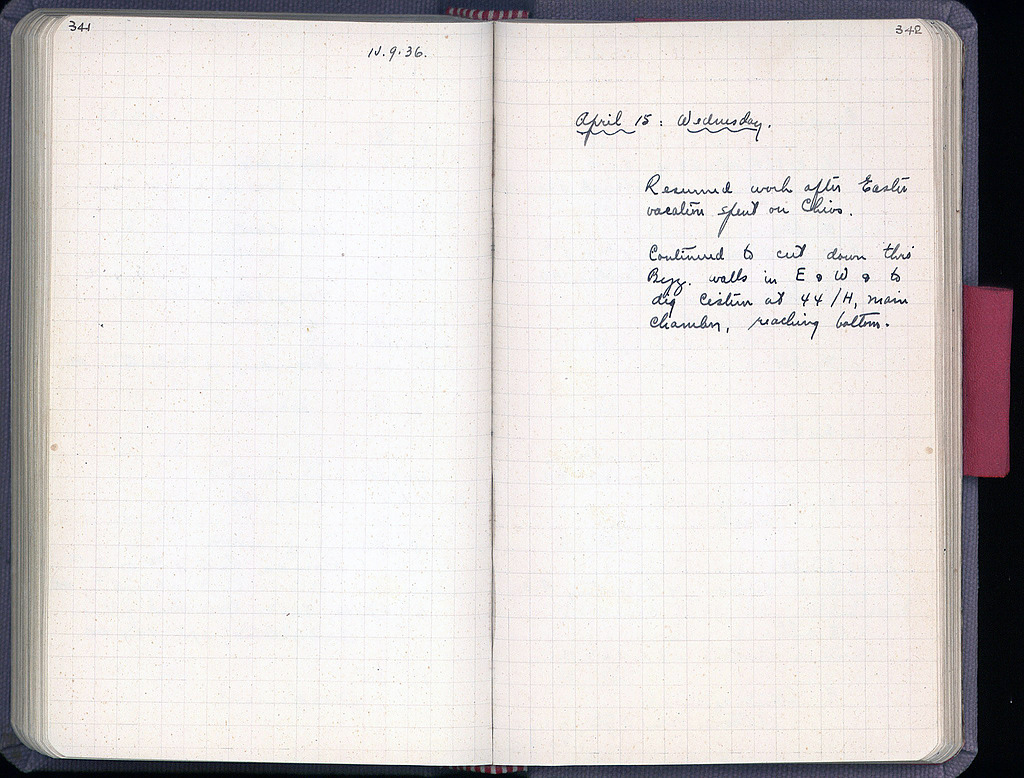 341
9.36.
342
April 15: Wednesday.
Resumed work after Easter
vacation spent on Chios.
Continued to cut down thro
Byz. walls in E & W & to
dig cistern at 44/H, main
chamber, reaching bottom.